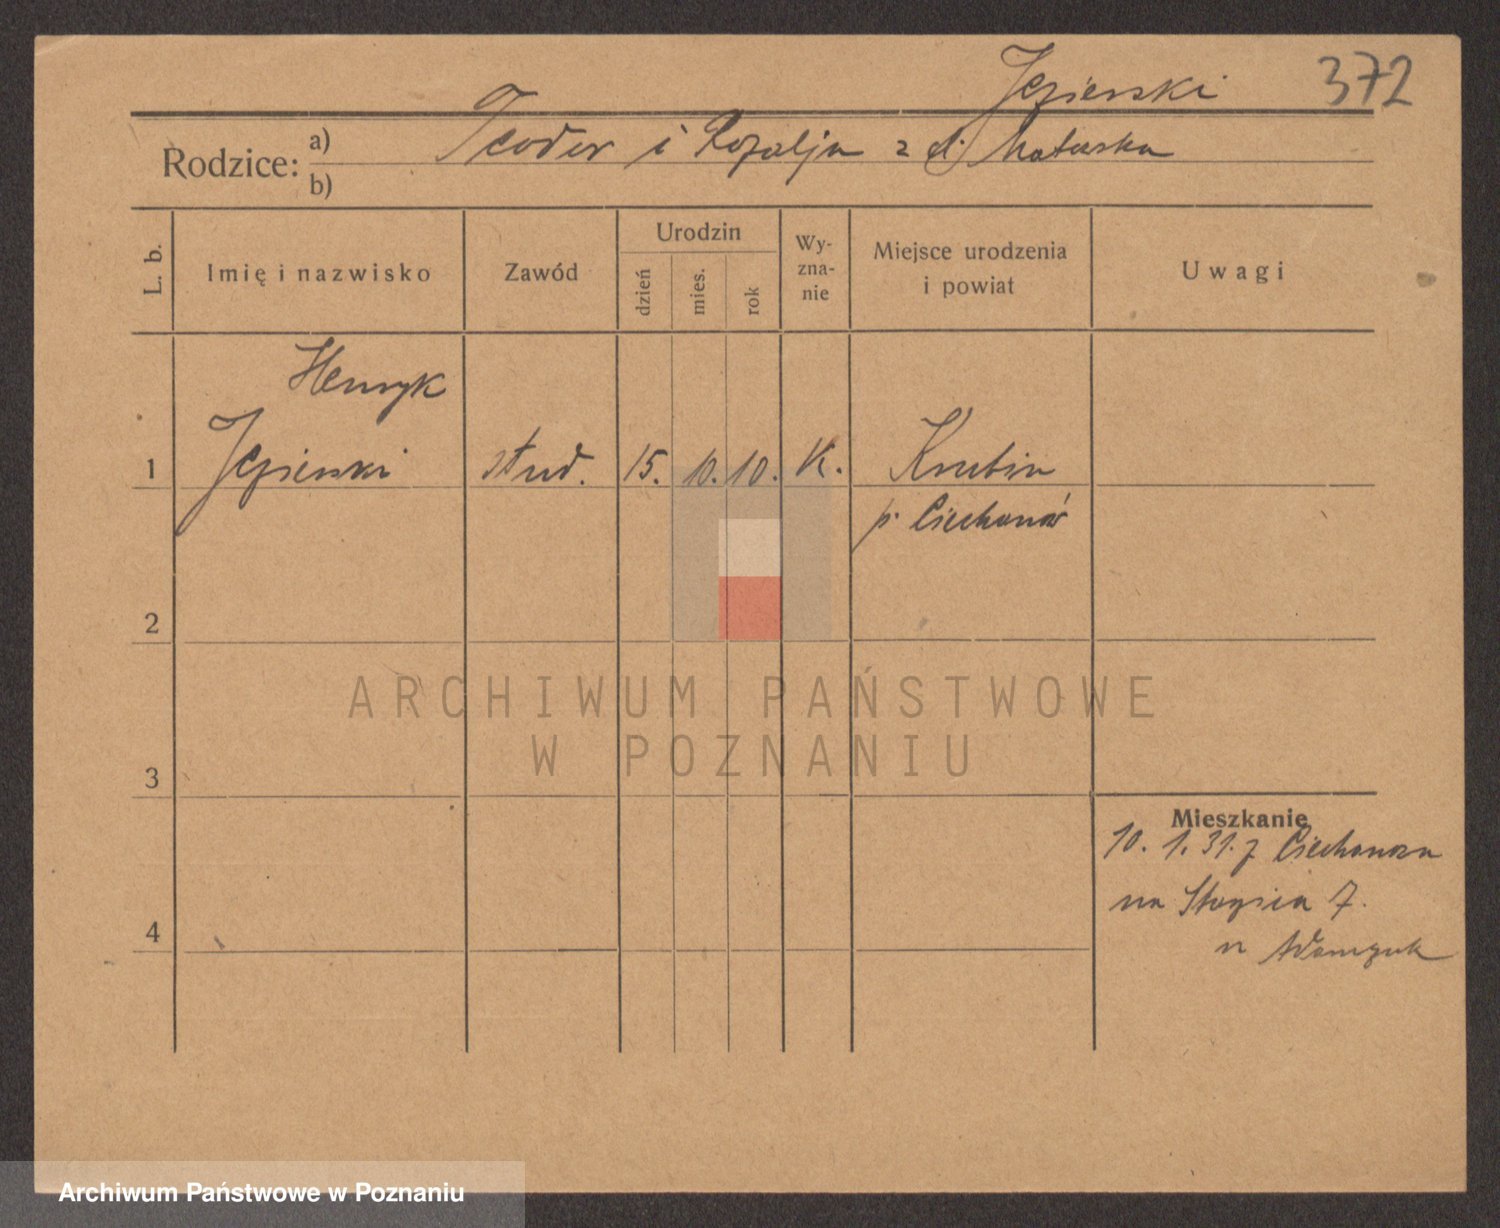 Jezierski 372
Rodzice: a) Teodor i Rozalja z d.
b)
L. b. Imię i nazwisko Zawód Urodzin dzień mies. rok Wyzna-nie Miejsce urodzenia i powiat Uwagi
Henryk
1 Jezierski stud. 15. 10. 10. K. Krubin
p. Ciechanów
2
ARCHIWUM PAŃSTWOWE
W POZNANIU
3
Mieszkanie
10. 1. 31. z Ciechanowa
na Stazica 7.
4
u Adamczuk
Archiwum Państwowe w Poznaniu